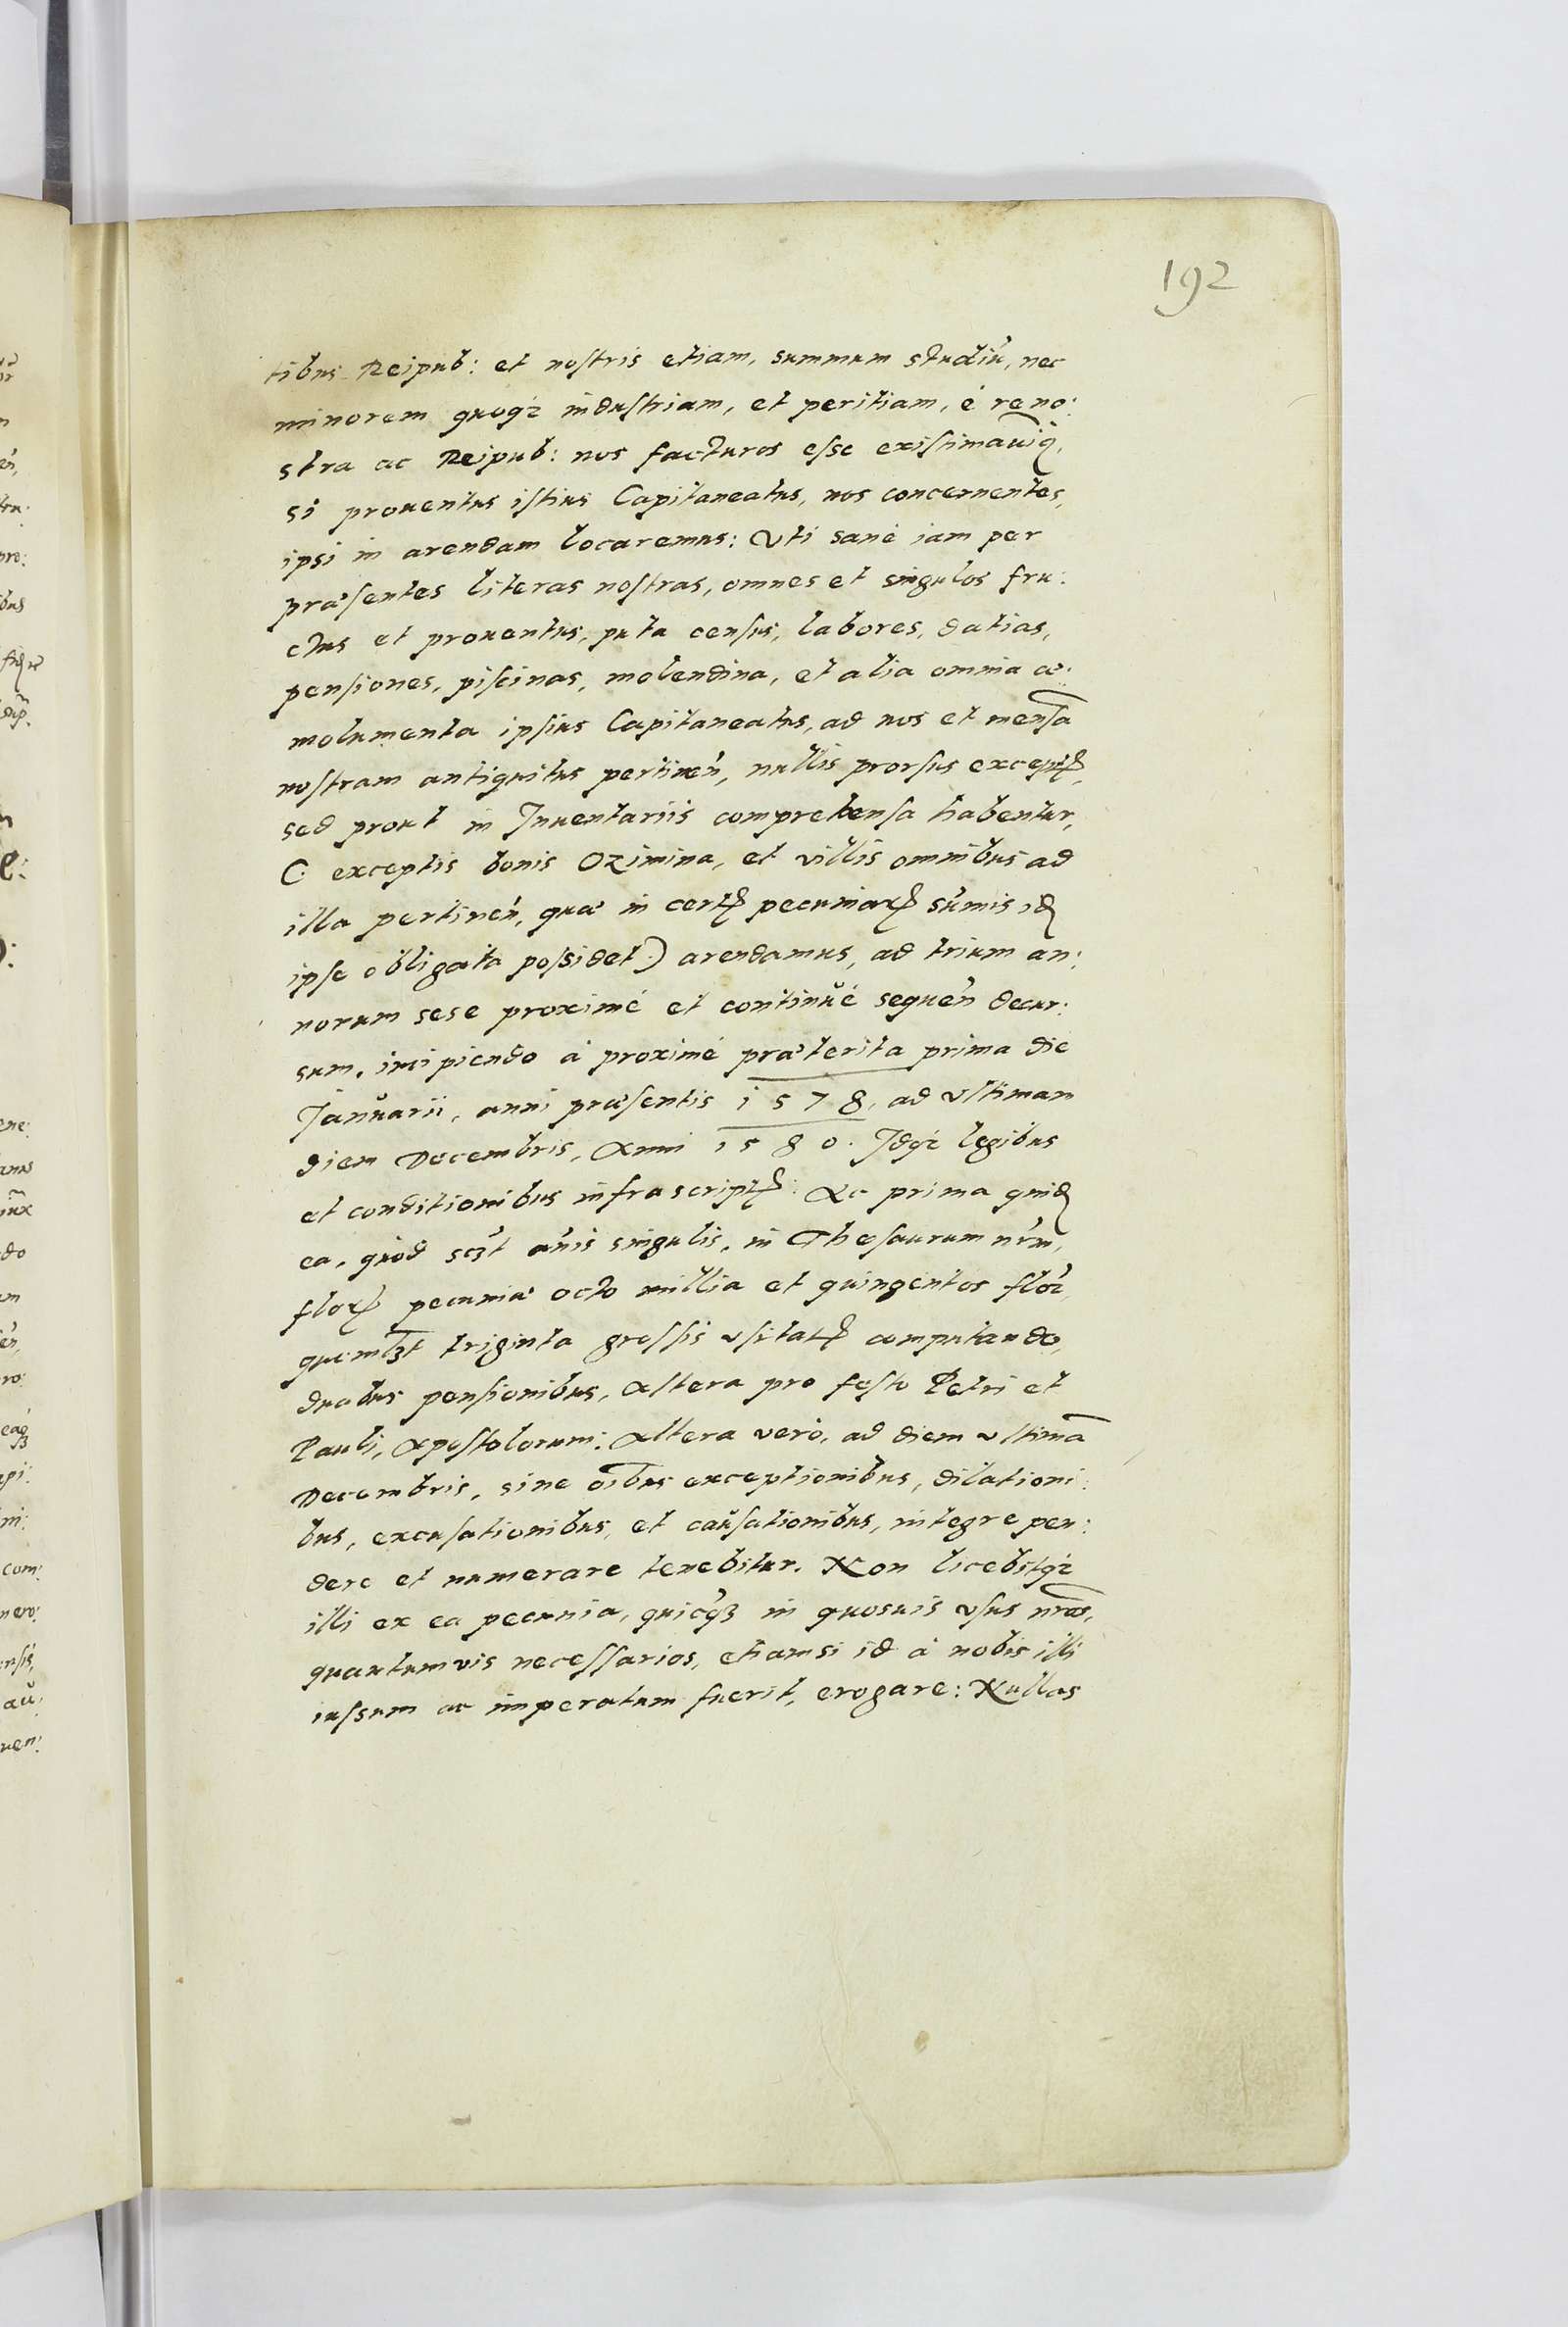 192
tibus Reipub: et nostris etiam, summum studiũ, nec
minorem quoqꝫ industriam, et peritiam, è re no:
stra ac Reipub: nos facturos esse existimauiꝗ,
si prouentus istius Capitaneatus, nos concernentes,
ipsi in arendam locaremus: Vti sanè iam per
præsentes literas nostras, omnes et singulos fru:
ctus et prouentus, puta census, labores, datias,
pensiones, piscinas, molendina, et alia omnia æ:
molumenta ipsius Capitaneatus, ad nos et mensã
nostram antiquitus pertineñ, nullis prorsus exceptꝭ,
sed prout in Inuentariis comprehensa habentur,
(: exceptis bonis Ozimina, et villis omnibus ad
illa pertineñ, quæ in certꝭ pecuniarꝭ sum̃is idꝭ
ipse obligata possidet :) arendamus, ad trium an:
norum sese proximè et continuè sequeñ decur:
sum, incipiendo à proximè præterita prima die
Ianuarii, anni præsentis 1578, ad vltimam
diem Decembris, Anni 1580. Idqꝫ legibus
et conditionibus infrascriptꝭ: Ac prima quidꝭ
ea, quòd scꝫt añis singulis, in Thesaurum nrm̃,
florꝭ pecuniæ octo millia et quingentos flor̃,
quemlꝫt triginta grossis vsitatꝭ computando,
duabus pensionibus, altera pro festo Petri et
Pauli, Apostolorum: Altera verò, ad diem vltimã
Decembris, sine oĩbus exceptionibus, dilationi:
bus, excusationibus, et causationibus, integre pen:
dere et numerare tenebitur. Non licebitqꝫ
illi ex ea pecunia, quicꝗꝫ in quosuis vsus nrõs,
quantumuis necessarios, etiamsi id à nobis illi
iussum ac imperatum fuerit, erogare: Nullas